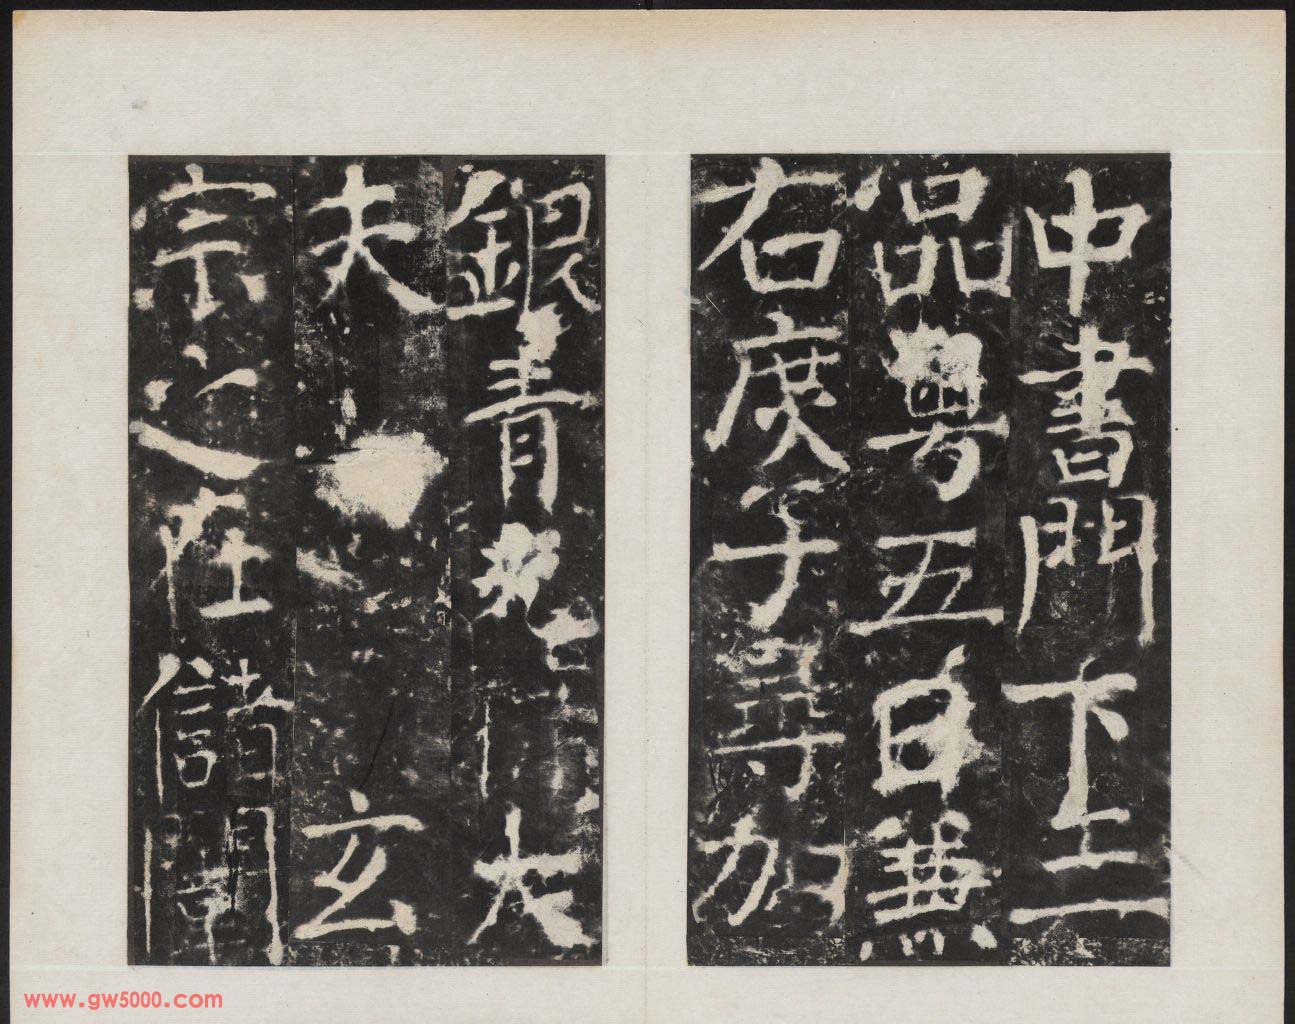 中書門下上
品粤五日兼
右庶子尋加
銀青光祿大
夫玄
宗之在儲闈
www.gw5000.com